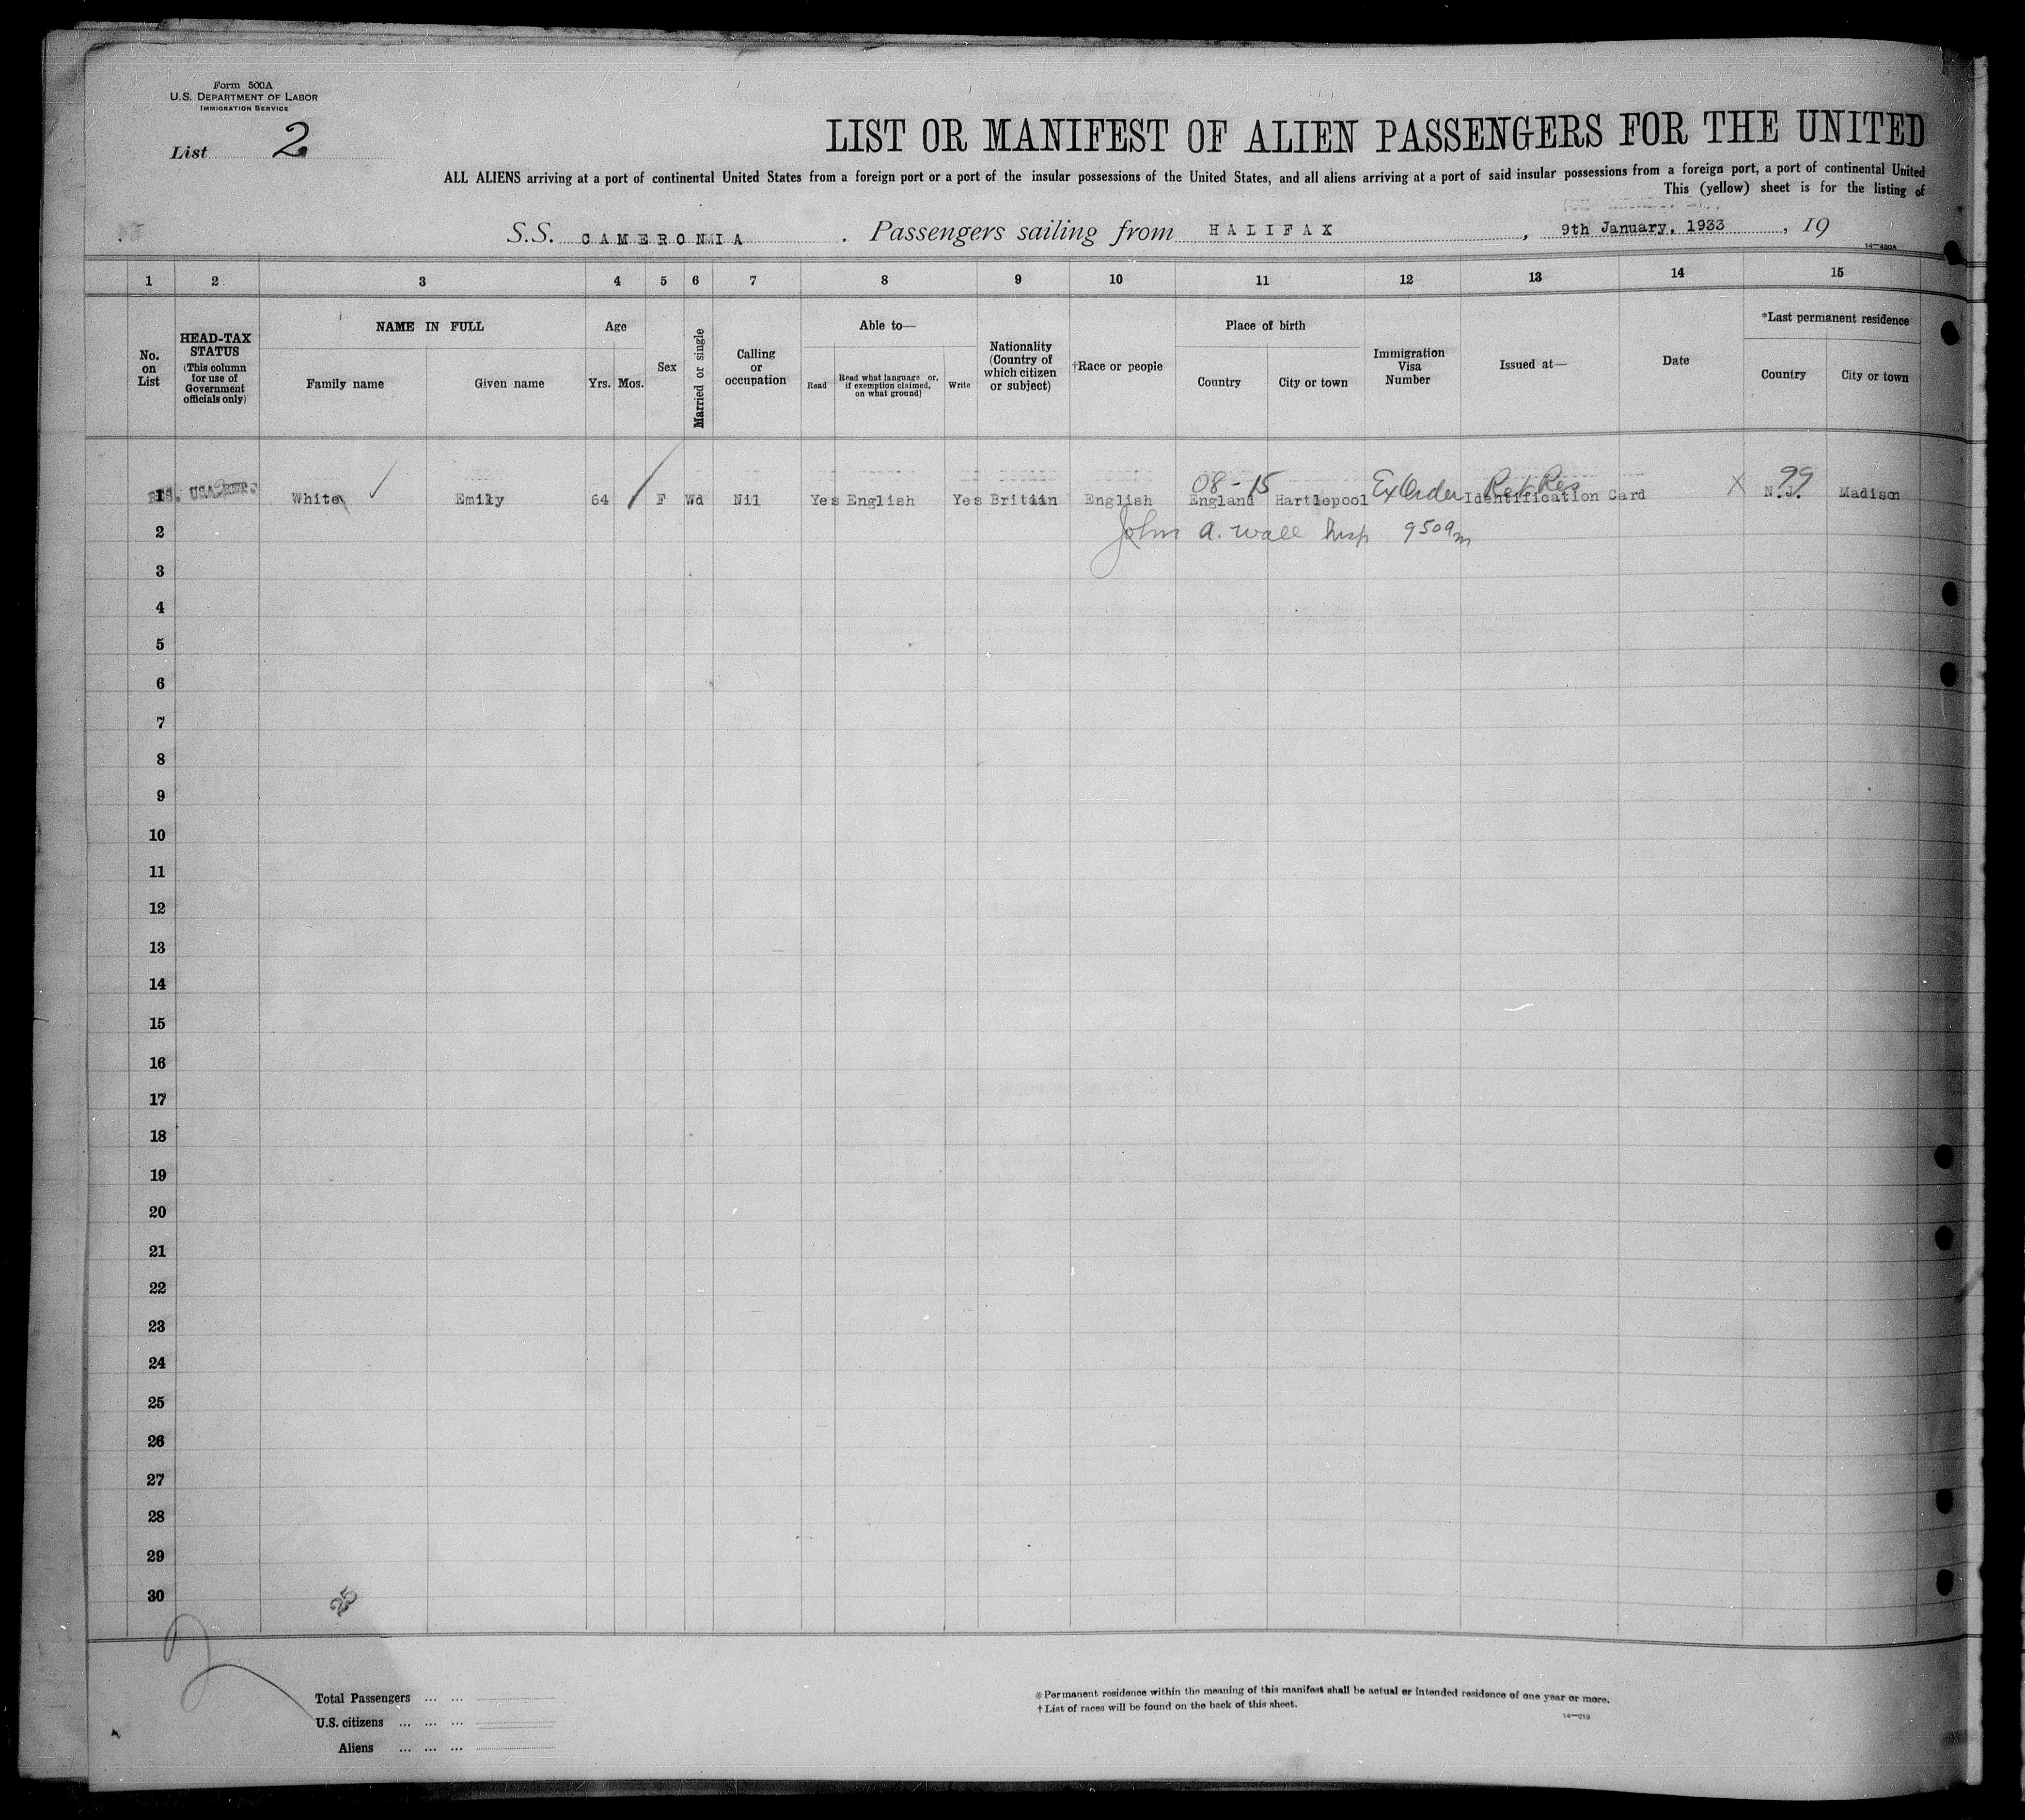 Form 500A
U.S. DEPARTMENT OF LABOR
IMMIGRATION SERVICE
List 2
LIST OR MANIFEST OF ALIEN PASSENGERS FOR THE UNITED
ALL ALIENS arriving at a port of continental United States from a foreign port or a port of the insular possessions of the United States, and all aliens arriving at a port of said insular possessions from a foreign port, a port of continental United
This (yellow) sheet is for the listing of
S.S. CAMERONIA . Passengers sailing from HALIFAX , 9th January, 1933 , 19
14—480A
1 2 3 4 5 6 7 8 9 10 11 12 13 14 15
No. on List
HEAD-TAX STATUS
(This column for use of Government officials only)
NAME IN FULL
Family name Given name
Age
Yrs. Mos.
Sex
Married or single
Calling or occupation
Able to—
Read
Read what language or, if exemption claimed, on what ground
Write
Nationality (Country of which citizen or subject)
†Race or people
Place of birth
Country City or town
Immigration Visa Number
Issued at—
Date
*Last permanent residence
Country City or town
08-15 Ex Order Ret Res X 99
1 White Emily 64 F Wd Nil Yes English Yes Britain English England Hartlepool Identification Card N.J. Madison
2 John A. Wall Insp 950am
3
4
5
6
7
8
9
10
11
12
13
14
15
16
17
18
19
20
21
22
23
24
25
26
27
28
29
30
25
Total Passengers ... ...
U.S. citizens ... ... ...
Aliens ... ... ...
* Permanent residence within the meaning of this manifest shall be actual or intended residence of one year or more.
† List of races will be found on the back of this sheet.